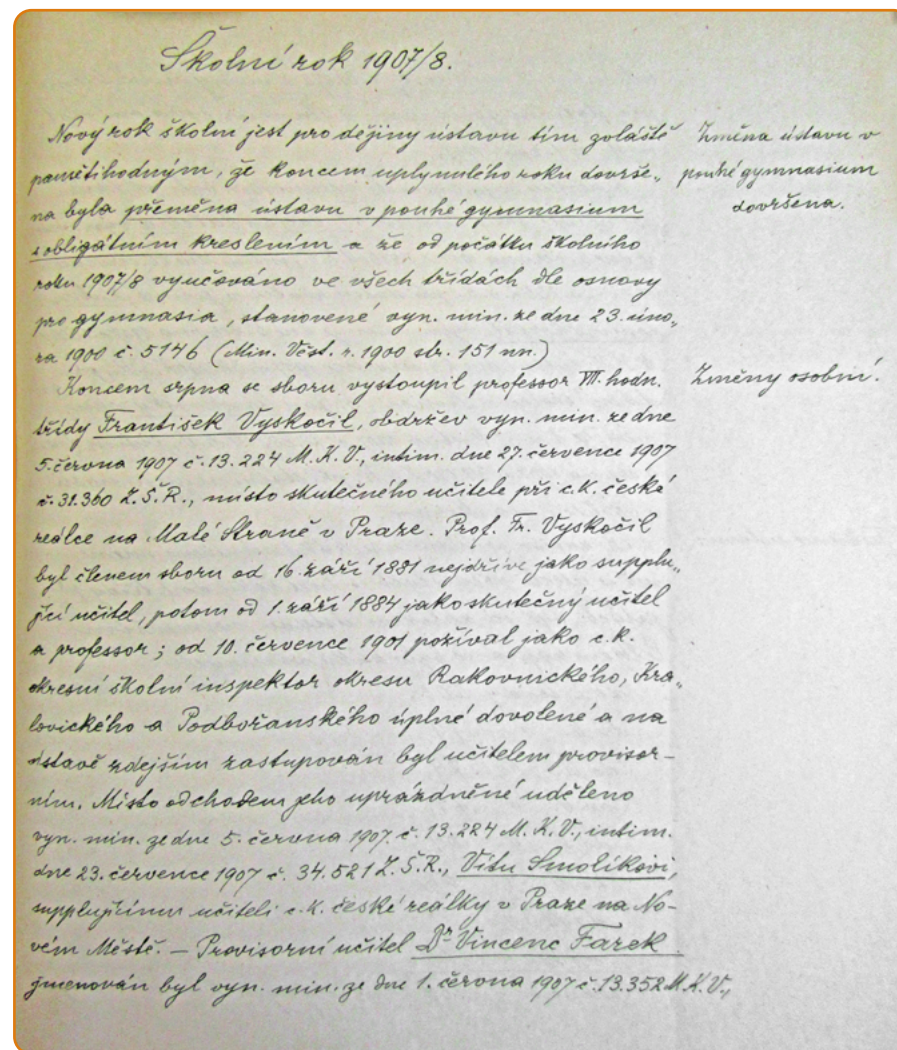 Školní rok 1907/8.
Nový rok školní jest pro dějiny ústavu tím zvláště
pamětihodným, že koncem uplynulého roku dovrše„
na byla přeměna ústavu v pouhé gymnasium
s obligátním kreslením a že od počátku školního
roku 1907/8 vyučováno ve všech třídách dle osnovy
pro gymnasia, stanovené vyn. min. ze dne 23. úno„
ra 1900 č. 5146 (Min. Věst. r. 1900 str. 151 nn.)
Koncem srpna se sboru vystoupil professor VIII. hodn.
třídy František Vyskočil, obdržev vyn. min. ze dne
5. června 1907 č. 13.224 M. K. V., intim. dne 27. července 1907
č. 31.360 Z. Š. R., místo skutečného učitele při c. k. české
reálce na Malé Straně v Praze. Prof. Fr. Vyskočil
byl členem sboru od 16. září 1881 nejdříve jako supplu„
jící učitel, potom od 1. září 1884 jako skutečný učitel
a professor; od 10. července 1901 požíval jako c. k.
okresní školní inspektor okresu Rakovnického, Kra„
lovického a Podbořanského úplné dovolené a na
ústavě zdejším zastupován byl učitelem provisor-
ním. Místo odchodem jeho uprázdněné uděleno
vyn. min. ze dne 5. června 1907 č. 13.224 M. K. V., intim.
dne 23. července 1907 č. 34.521 Z. Š. R., Vítu Smolíkovi,
supplujícímu učiteli c. k. české reálky v Praze na No-
vém Městě. — Provisorní učitel Dr Vincenc Farek
jmenován byl vyn. min. ze dne 1. června 1907 č. 13.352 M. K. V.,
Změna ústavu v
pouhé gymnasium
dovršena.
Změny osobní.